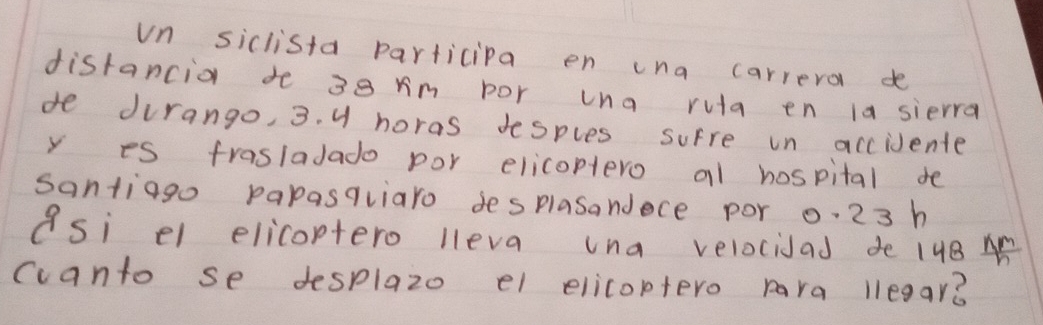 Un siclista participa en una carrera de
distancia de 38 km por una ruta en la sierra
de durango, 3.4 horas despues sufre un accidente
y es trasladado por elicoptero al hospital de
santiago papasquiaro desplasandoce por 0.23 h
¿si el elicoptero lleva una velocidad de 148 km/h
cuanto se desplazo el elicoptero para llegar?